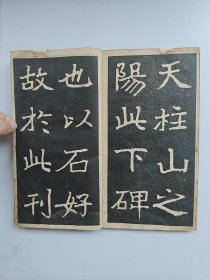 天柱山之
陽此下碑
也以石好
故於此刊